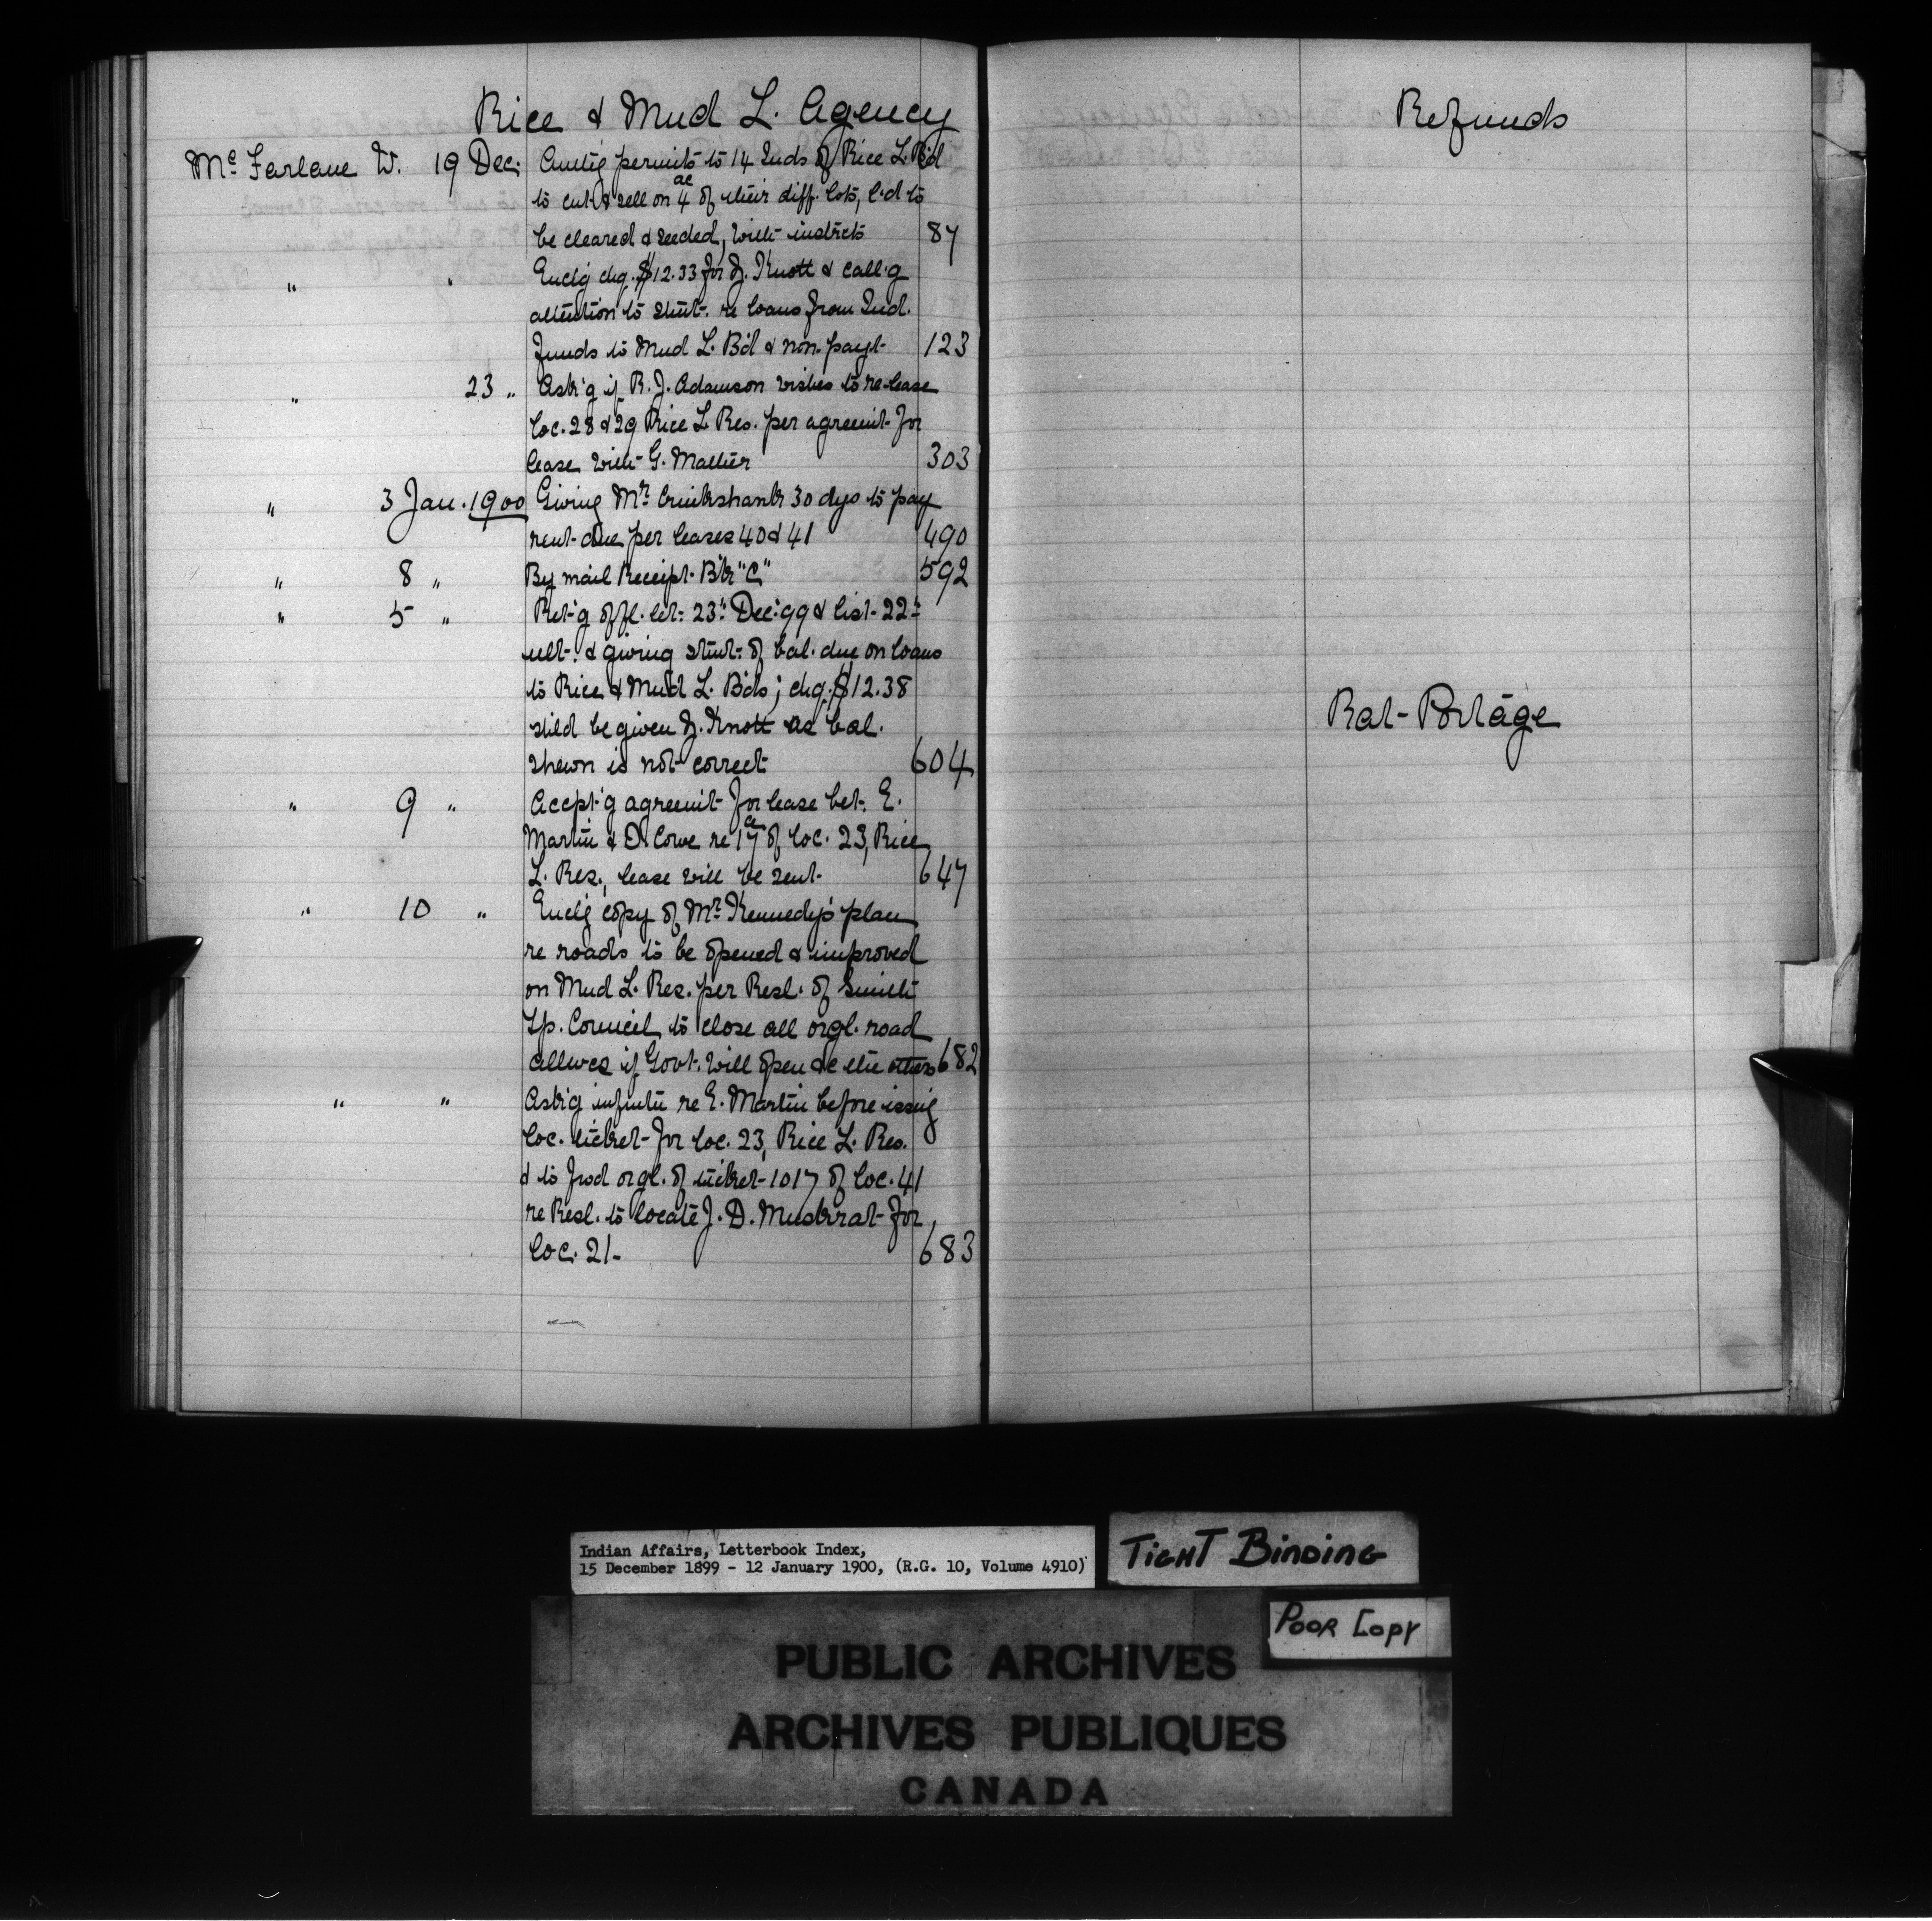 Rice & Mud L. Agency
McFarlane W. 19 Dec. Enclig permits to 14 Inds of Rice L. Bd
to cut & sell on 4 ac of their diff. locs, l'd to
be cleared & seeded, with instrcts 87
" " Encl'g chq. $12.33 for J. Knott & call'g
attention to stmt. re loans from Ind.
Funds to Mud L. Bd & non-payt. 123
" 23 " Ask'g if R. J. Adamson wishes to re-lease
loc. 28 & 29 Rice L. Res. per agreemt for
lease with G. Mather 303
" 3 Jan. 1900 Giving Mr. Cruikshank 30 dys to pay
rent due per leases 40 & 41 490
" 8 " By mail Receipt Bk "C" 592
" 5 " Ret'g offl. let. 23d Dec. '99 & list 22d
ult. & giving stmt. of bal. due on loans
to Rice & Mud L. Bds; chq. $12.38
shld be given J. Knott as bal.
shewn is not correct 604
" 9 " Accpt'g agreemt for lease bet. E.
Martin & D. Cowe re 17 ac of loc. 23, Rice
L. Res., lease will be sent 647
" 10 " Encl'g copy of Mr. Kennedy's plan
re roads to be opened & improved
on Mud L. Res. per Resl. of Smith
Tp. Council to close all orgl. road
allwces if Govt. will open &c the others 682
" " Ask'g infmtn re E. Martin before issuig
loc. ticket for loc. 23, Rice L. Res.
& to fwd orgl. of ticket 1017 of loc. 41
re Resl. to locate J. D. Muskrat for
loc. 21 683
Refunds
Rat Portage
Indian Affairs, Letterbook Index,
15 December 1899 - 12 January 1900, (R.G. 10, Volume 4910)
TIGHT BINDING
POOR COPY
PUBLIC ARCHIVES
ARCHIVES PUBLIQUES
CANADA